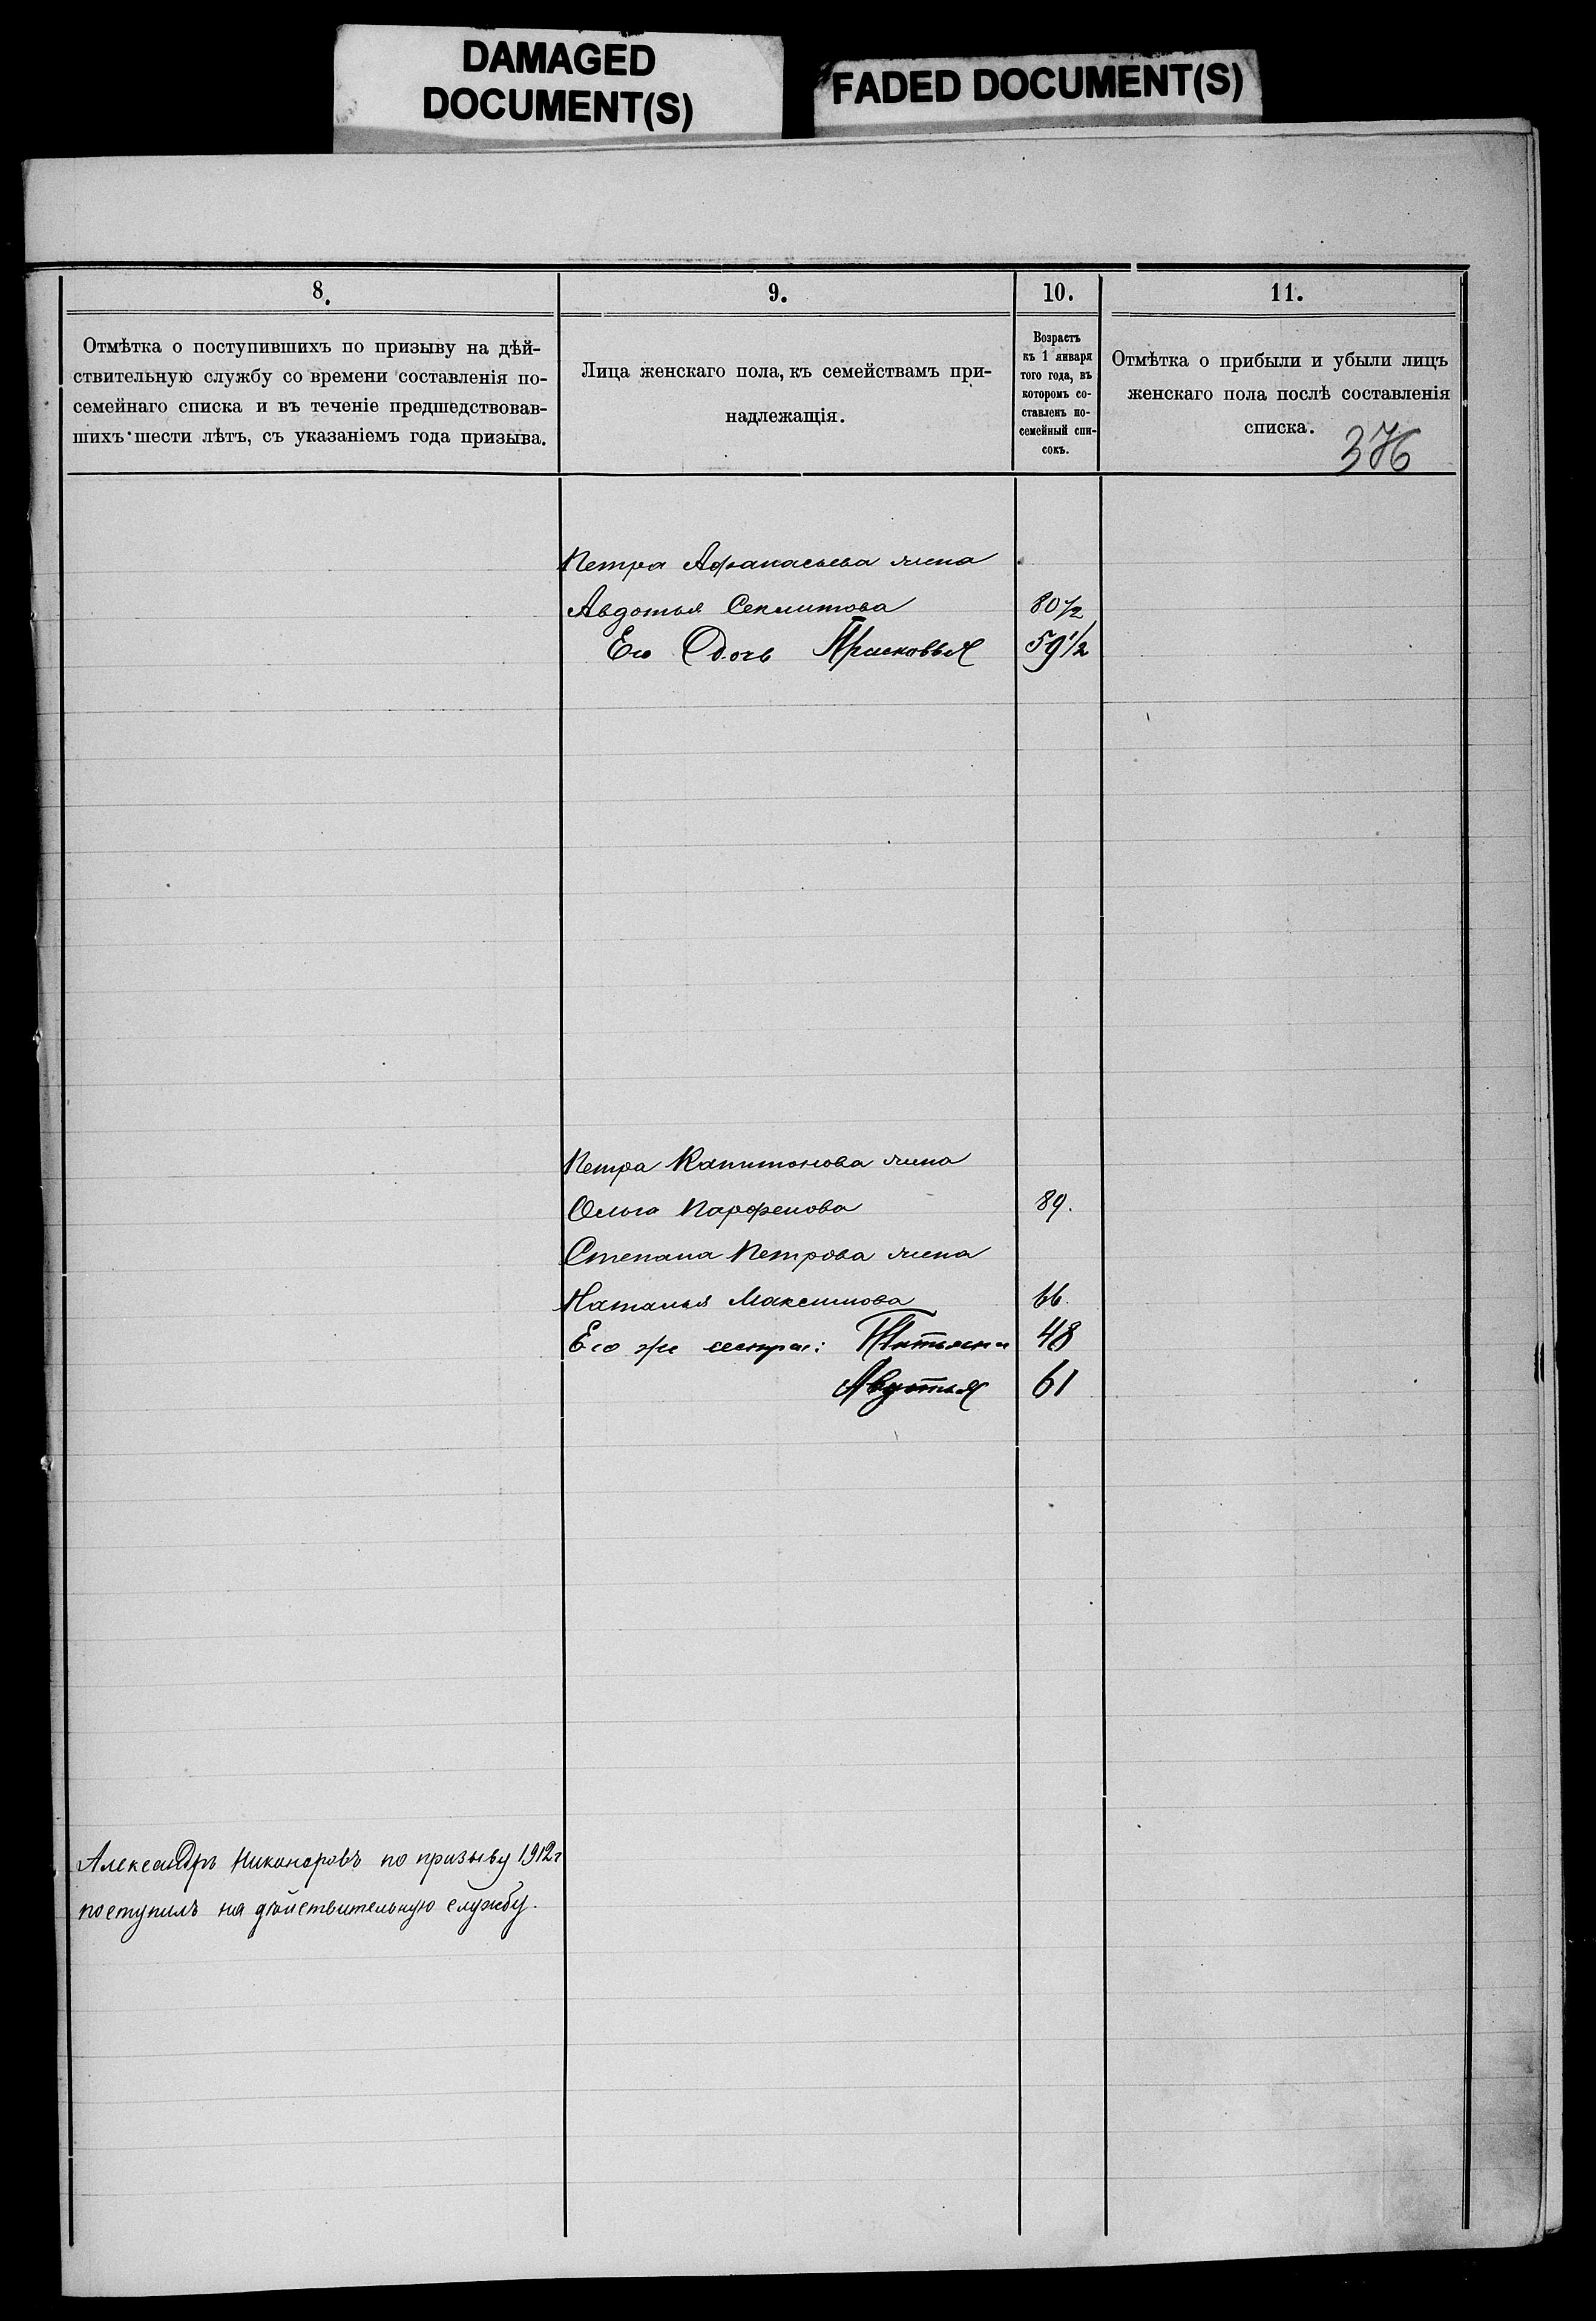 DAMAGED
DOCUMENT(S)
FADED DOCUMENT(S)
8.
Отмѣтка о поступившихъ по призыву на дѣй-
ствительную службу со времени составленія по-
семейнаго списка и въ теченіе предшедствовав-
шихъ шести лѣтъ, съ указаніемъ года призыва.
9.
Лица женскаго пола, къ семействамъ при-
надлежащія.
10.
Возрастъ
къ 1 января
того года, въ
которомъ со-
ставленъ по-
семейный спи-
сокъ.
11.
Отмѣтка о прибыли и убыли лицъ
женскаго пола послѣ составленія
списка.
376
Петра Афанасьева жена
Авдотья 80 1/2
Его дочь Прасковья 59 1/2
Петра Капитонова жена
Ольга Парфенова 89.
Степана Петрова жена
Наталья Максимова 66.
Его же сестра: Татьяна 48
Авдотья 61
Александръ Никоноровъ по призыву 1912 г
поступилъ на дѣйствительную службу.